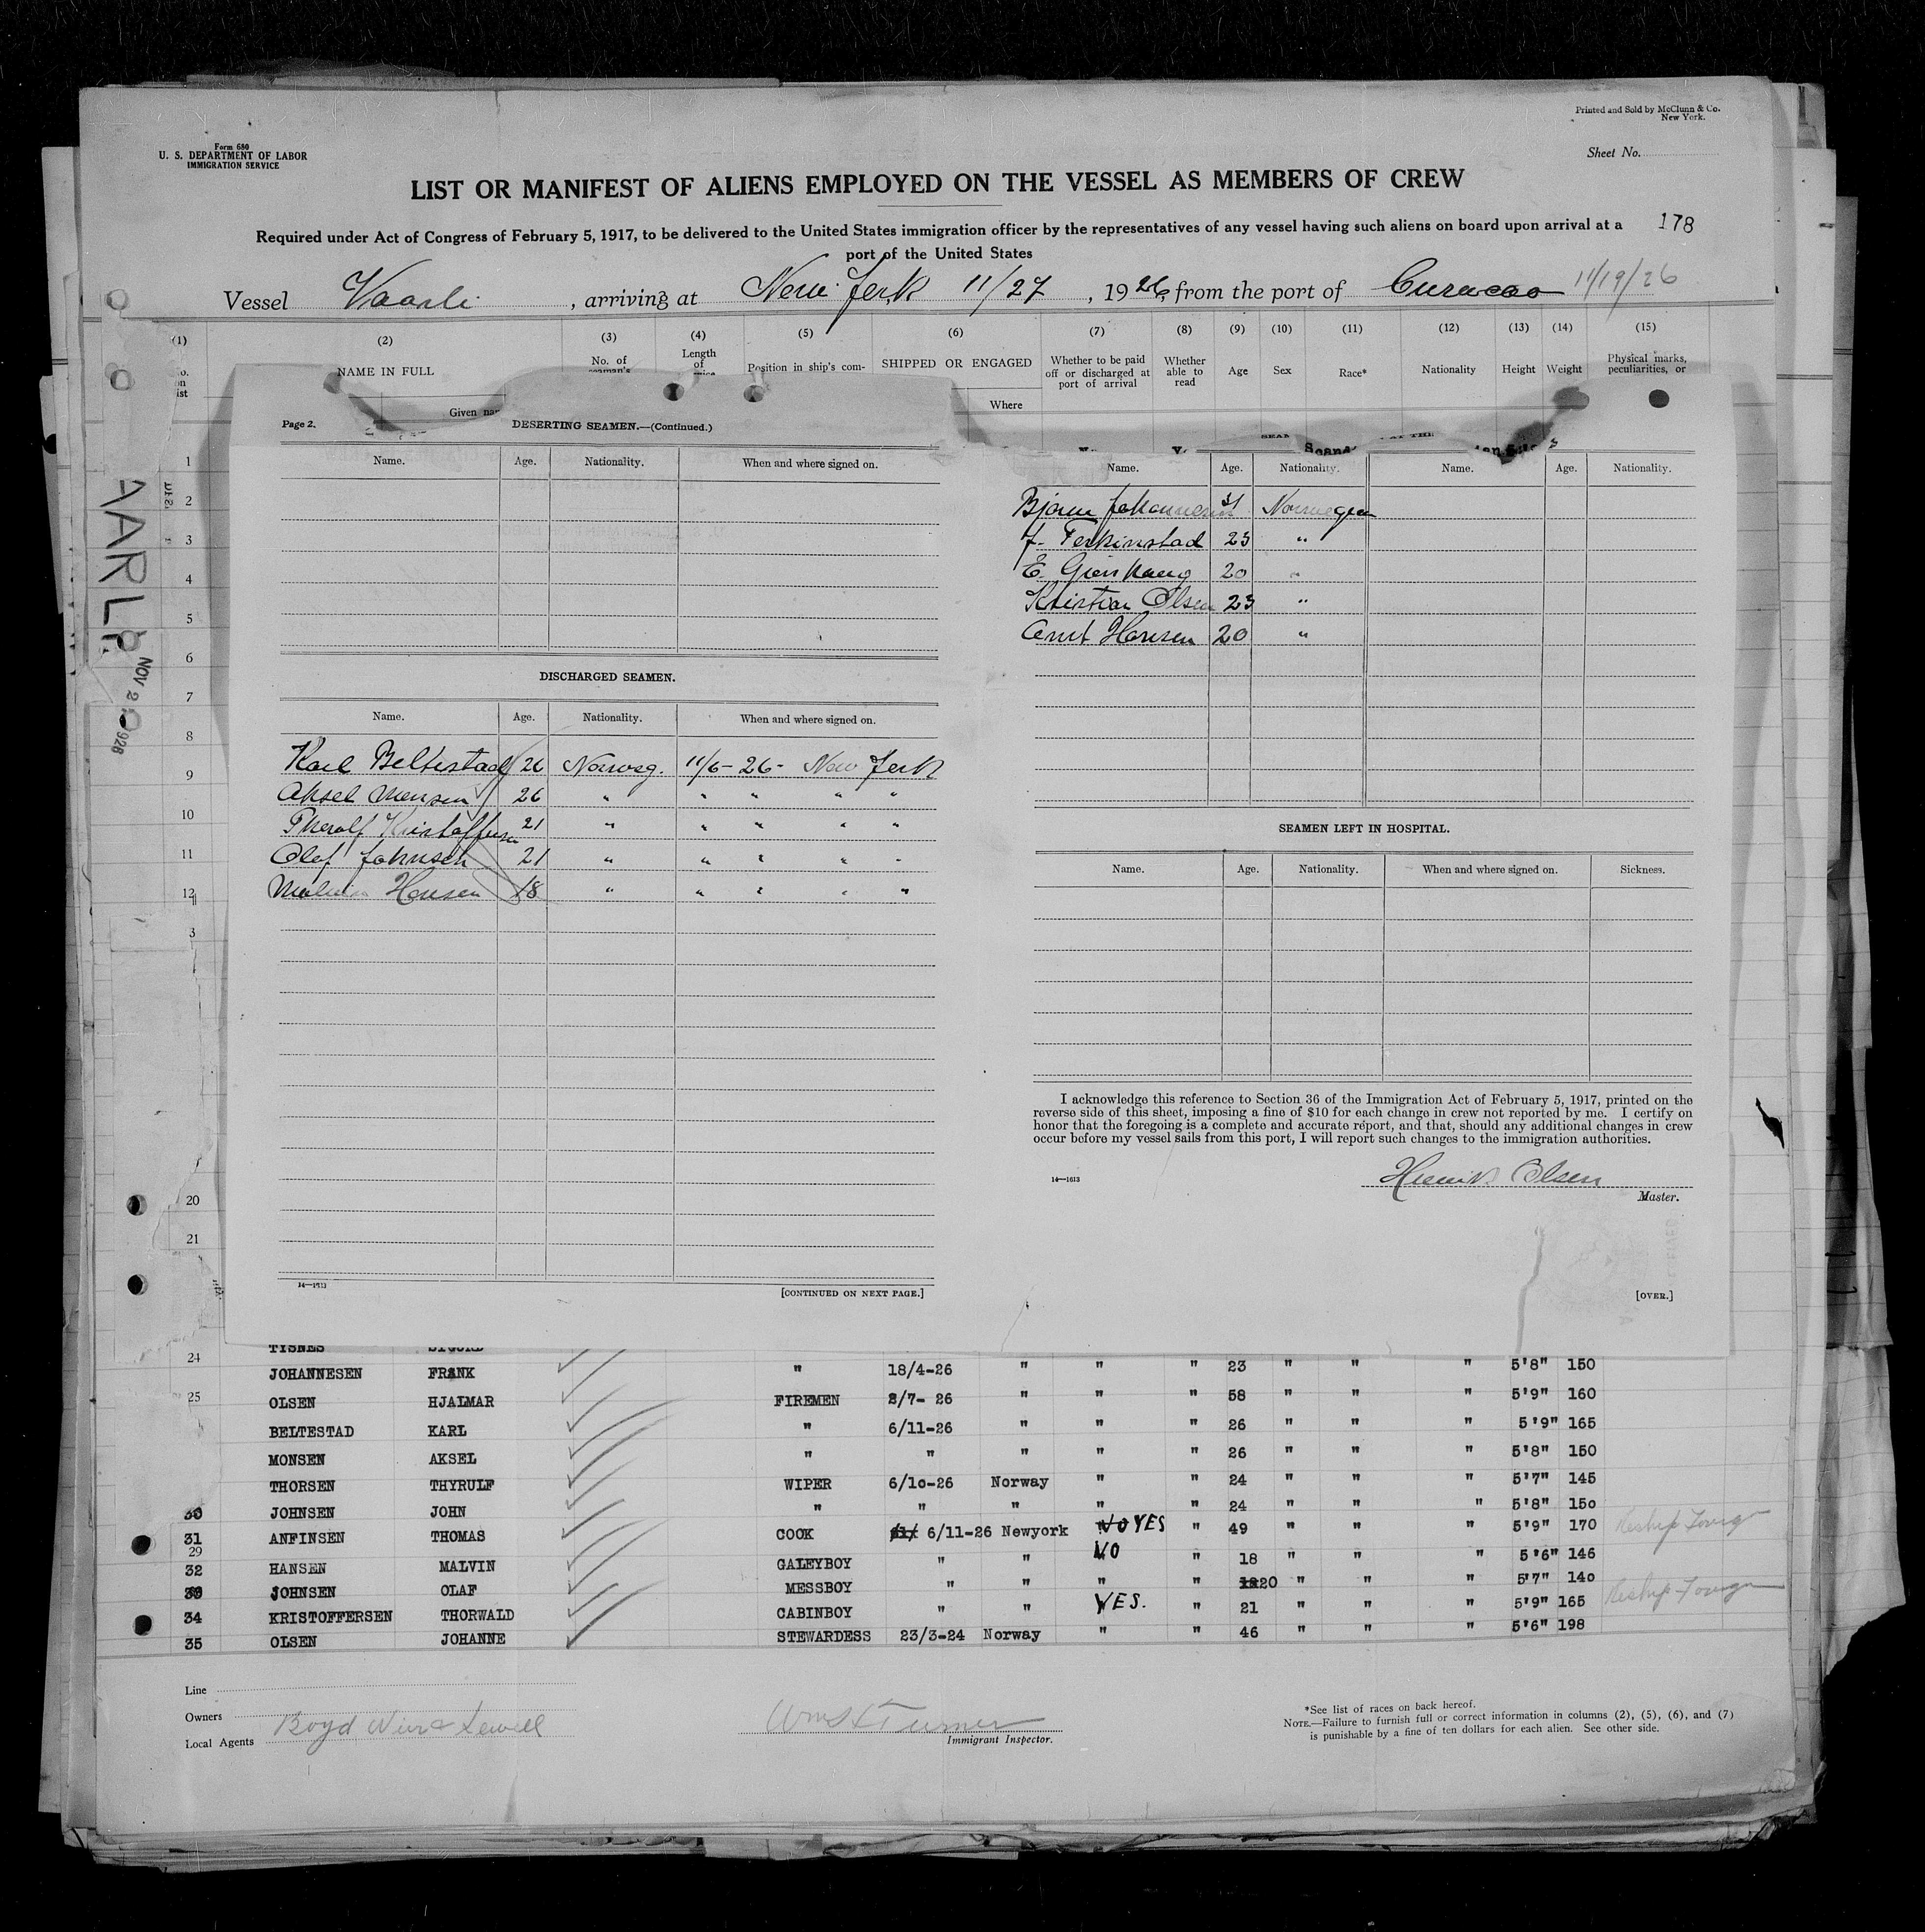 Printed and Sold by McClunn & Co.
New York.
Form 680
U. S. DEPARTMENT OF LABOR
IMMIGRATION SERVICE
Sheet No.
LIST OR MANIFEST OF ALIENS EMPLOYED ON THE VESSEL AS MEMBERS OF CREW
Required under Act of Congress of February 5, 1917, to be delivered to the United States immigration officer by the representatives of any vessel having such aliens on board upon arrival at a
port of the United States
178
Vessel Vaarli, arriving at New Jerk 11/27, 1926, from the port of Curacao 11/19/26
(1) (2) (3) (4) (5) (6) (7) (8) (9) (10) (11) (12) (13) (14) (15)
NAME IN FULL No. of Length of Position in ship's com- SHIPPED OR ENGAGED Whether to be paid off or discharged at port of arrival Whether able to read Age Sex Race* Nationality Height Weight Physical marks, peculiarities, or
Where
Page 2. DESERTING SEAMEN.—(Continued.)
Name. Age. Nationality. When and where signed on.
DISCHARGED SEAMEN.
Name. Age. Nationality. When and where signed on.
Karl Beltestad 26 Norweg. 11/6-26- New Jerk
Aksel Monsen 26 " " " " "
Thoralf Kristoffersen 21 " " " " "
Olaf Johnsen 21 " " " " "
Malvin Hansen 18 " " " " "
14—1613
[CONTINUED ON NEXT PAGE.]
Name. Age. Nationality. Name. Age. Nationality.
Bjarne Johannesen 31 Norwegen
J. Ferkinstad 23 "
E. 20 "
Kristian Olsen 23 "
Arnt Hansen 20 "
SEAMEN LEFT IN HOSPITAL.
Name. Age. Nationality. When and where signed on. Sickness.
I acknowledge this reference to Section 36 of the Immigration Act of February 5, 1917, printed on the
reverse side of this sheet, imposing a fine of $10 for each change in crew not reported by me. I certify on
honor that the foregoing is a complete and accurate report, and that, should any additional changes in crew
occur before my vessel sails from this port, I will report such changes to the immigration authorities.
14—1613
Henrik Olsen
Master.
[OVER.]
1
2
3
4
5
6
7
8
9
10
11
12
3
20
21
24
25
TISNES SIGURD
JOHANNESEN FRANK " 18/4-26 " " " 23 " " " 5'8" 150
OLSEN HJALMAR FIREMEN 8/7- 26 " " " 58 " " " 5'9" 160
BELTESTAD KARL " 6/11-26 " " " 26 " " " 5'9" 165
MONSEN AKSEL " " " " " 26 " " " 5'8" 150
THORSEN THYRULF WIPER 6/10-26 Norway " " 24 " " " 5'7" 145
30 JOHNSEN JOHN " " " " " 24 " " " 5'8" 150
31 ANFINSEN THOMAS COOK 6/11-26 Newyork NO YES " 49 " " " 5'9" 170
29
32 HANSEN MALVIN GALEYBOY " " NO " 18 " " " 5'6" 146
JOHNSEN OLAF MESSBOY " " " " 20 " " " 5'7" 140
34 KRISTOFFERSEN THORWALD CABINBOY " " YES. " 21 " " " 5'9" 165
35 OLSEN JOHANNE STEWARDESS 23/3-24 Norway " " 46 " " " 5'6" 198
Line
Owners
Local Agents Boyd Weir & Sewell
Immigrant Inspector.
*See list of races on back hereof.
NOTE.—Failure to furnish full or correct information in columns (2), (5), (6), and (7)
is punishable by a fine of ten dollars for each alien. See other side.